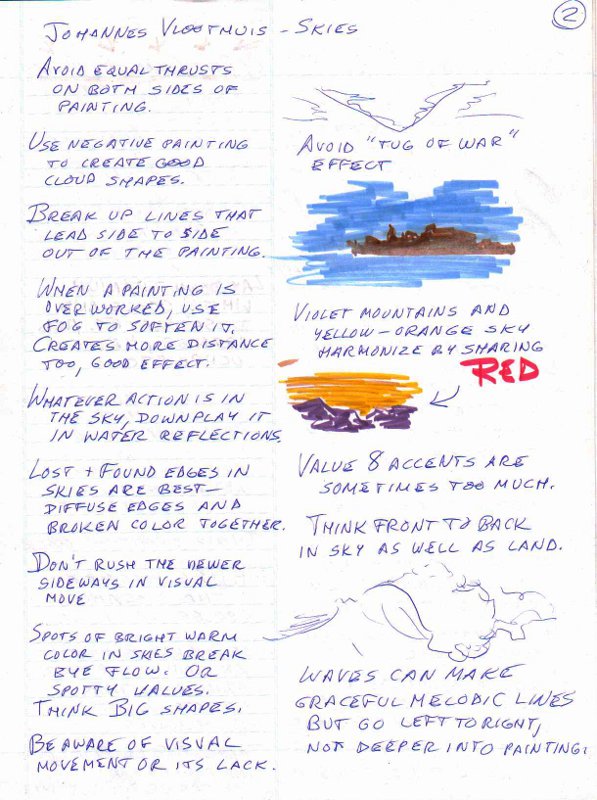 2
JOHANNES VLOOTHUIS - SKIES
AVOID EQUAL THRUSTS
ON BOTH SIDES OF
PAINTING.
USE NEGATIVE PAINTING
TO CREATE GOOD
CLOUD SHAPES.
BREAK UP LINES THAT
LEAD SIDE TO SIDE
OUT OF THE PAINTING.
WHEN A PAINTING IS
OVERWORKED, USE
FOG TO SOFTEN IT.
CREATES MORE DISTANCE
TOO, GOOD EFFECT.
WHATEVER ACTION IS IN
THE SKY, DOWNPLAY IT
IN WATER REFLECTIONS.
LOST + FOUND EDGES IN
SKIES ARE BEST—
DIFFUSE EDGES AND
BROKEN COLOR TOGETHER.
DON'T RUSH THE VIEWER
SIDEWAYS IN VISUAL
MOVE
SPOTS OF BRIGHT WARM
COLOR IN SKIES BREAK
EYE FLOW. OR
SPOTTY VALUES.
THINK BIG SHAPES.
BE AWARE OF VISUAL
MOVEMENT OR ITS LACK.
AVOID "TUG OF WAR"
EFFECT
VIOLET MOUNTAINS AND
YELLOW-ORANGE SKY
HARMONIZE BY SHARING
RED
VALUE 8 ACCENTS ARE
SOMETIMES TOO MUCH.
THINK FRONT TO BACK
IN SKY AS WELL AS LAND.
WAVES CAN MAKE
GRACEFUL MELODIC LINES
BUT GO LEFT TO RIGHT,
NOT DEEPER INTO PAINTING.